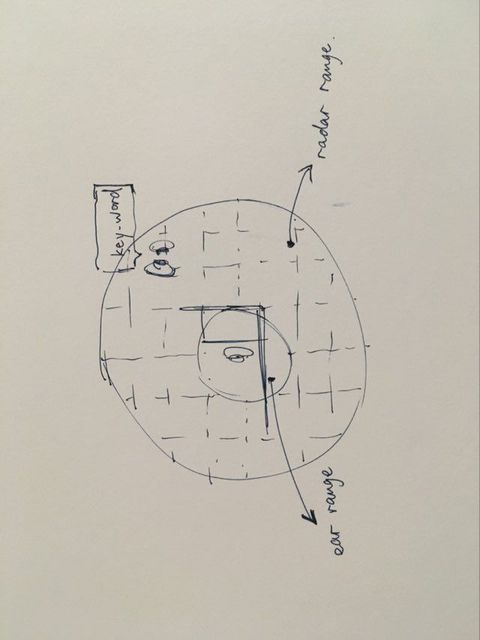 key-word
ear range
radar range.